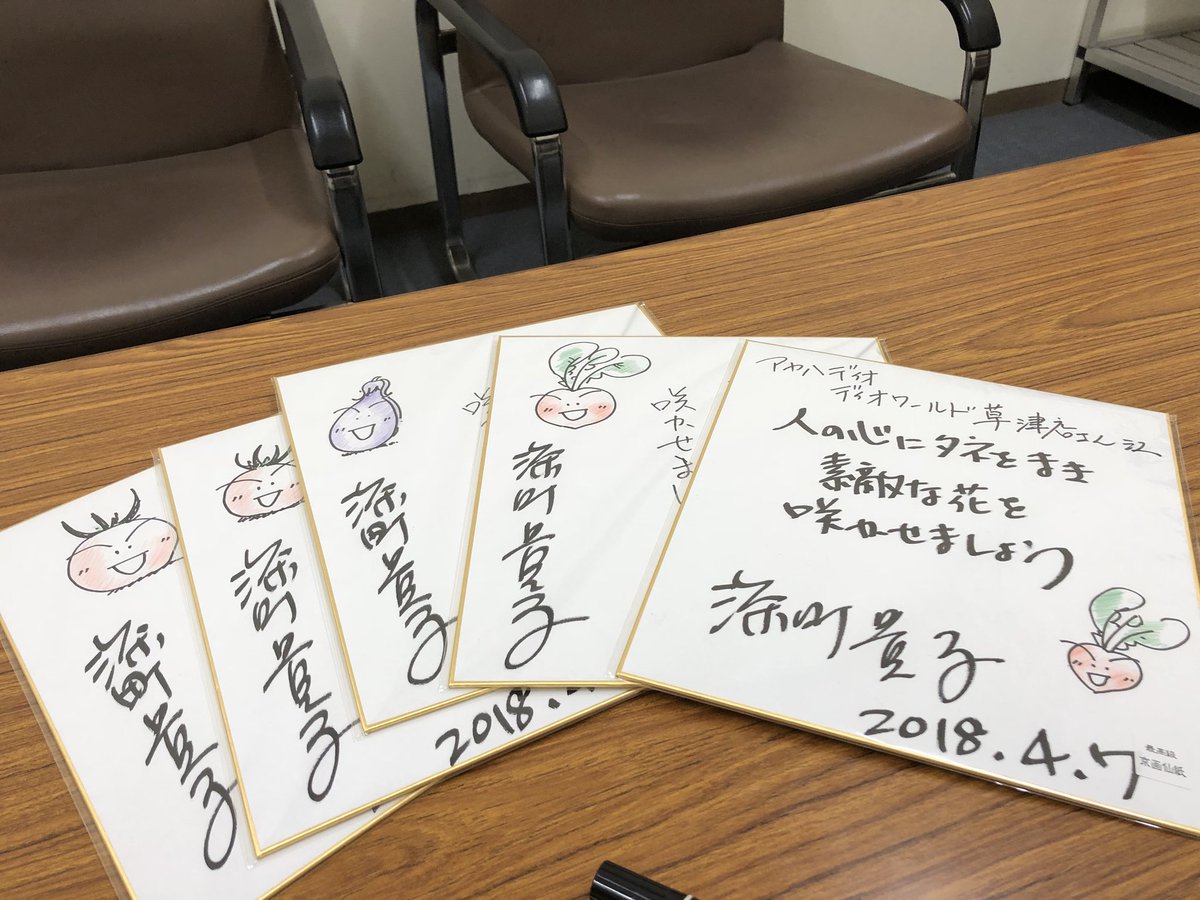 深町貴子
深町貴子
2018.4.
深町貴子
咲
深町貴子
咲かせまし
アヤハディオ
ディオワールド草津店さん江
人の心にタネをまき
素敵な花を
咲かせましょう
深町貴子
2018.4.7
京画仙紙